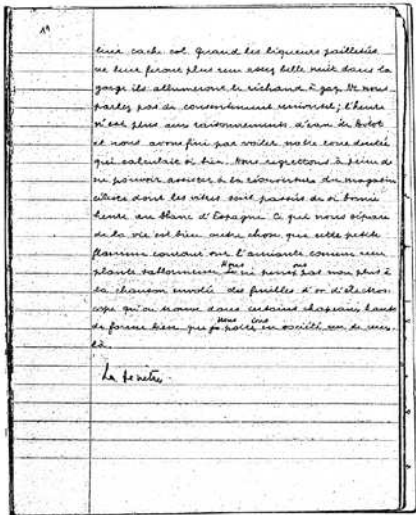 19
leur cache col. Quand les liqueurs pailletées
ne leur feront plus une assez belle nuit dans la
gorge ils allumeront le réchaud à gaz. Ne nous
parlez pas de consentement universel ; l'heure
n'est plus aux raisonnements d'eau de Botot
et nous avons fini par voiler notre roue dentée
qui calculait si bien. Nous regrettons à peine de
ne pouvoir assister à la réouverture du magasin
céleste dont les vitres sont passées de si bonne
heure au blanc d'Espagne. Ce qui nous sépare
de la vie est bien autre chose que cette petite
flamme courant sur l'amiante comme une
plante sablonneuse. Nous ne pensons pas non plus à
la chanson envolée des feuilles d'or d'électros-
cope qu'on trouve dans certains chapeaux hauts
de forme bien que nous en société un de ceux-
là.
La fenêtre.